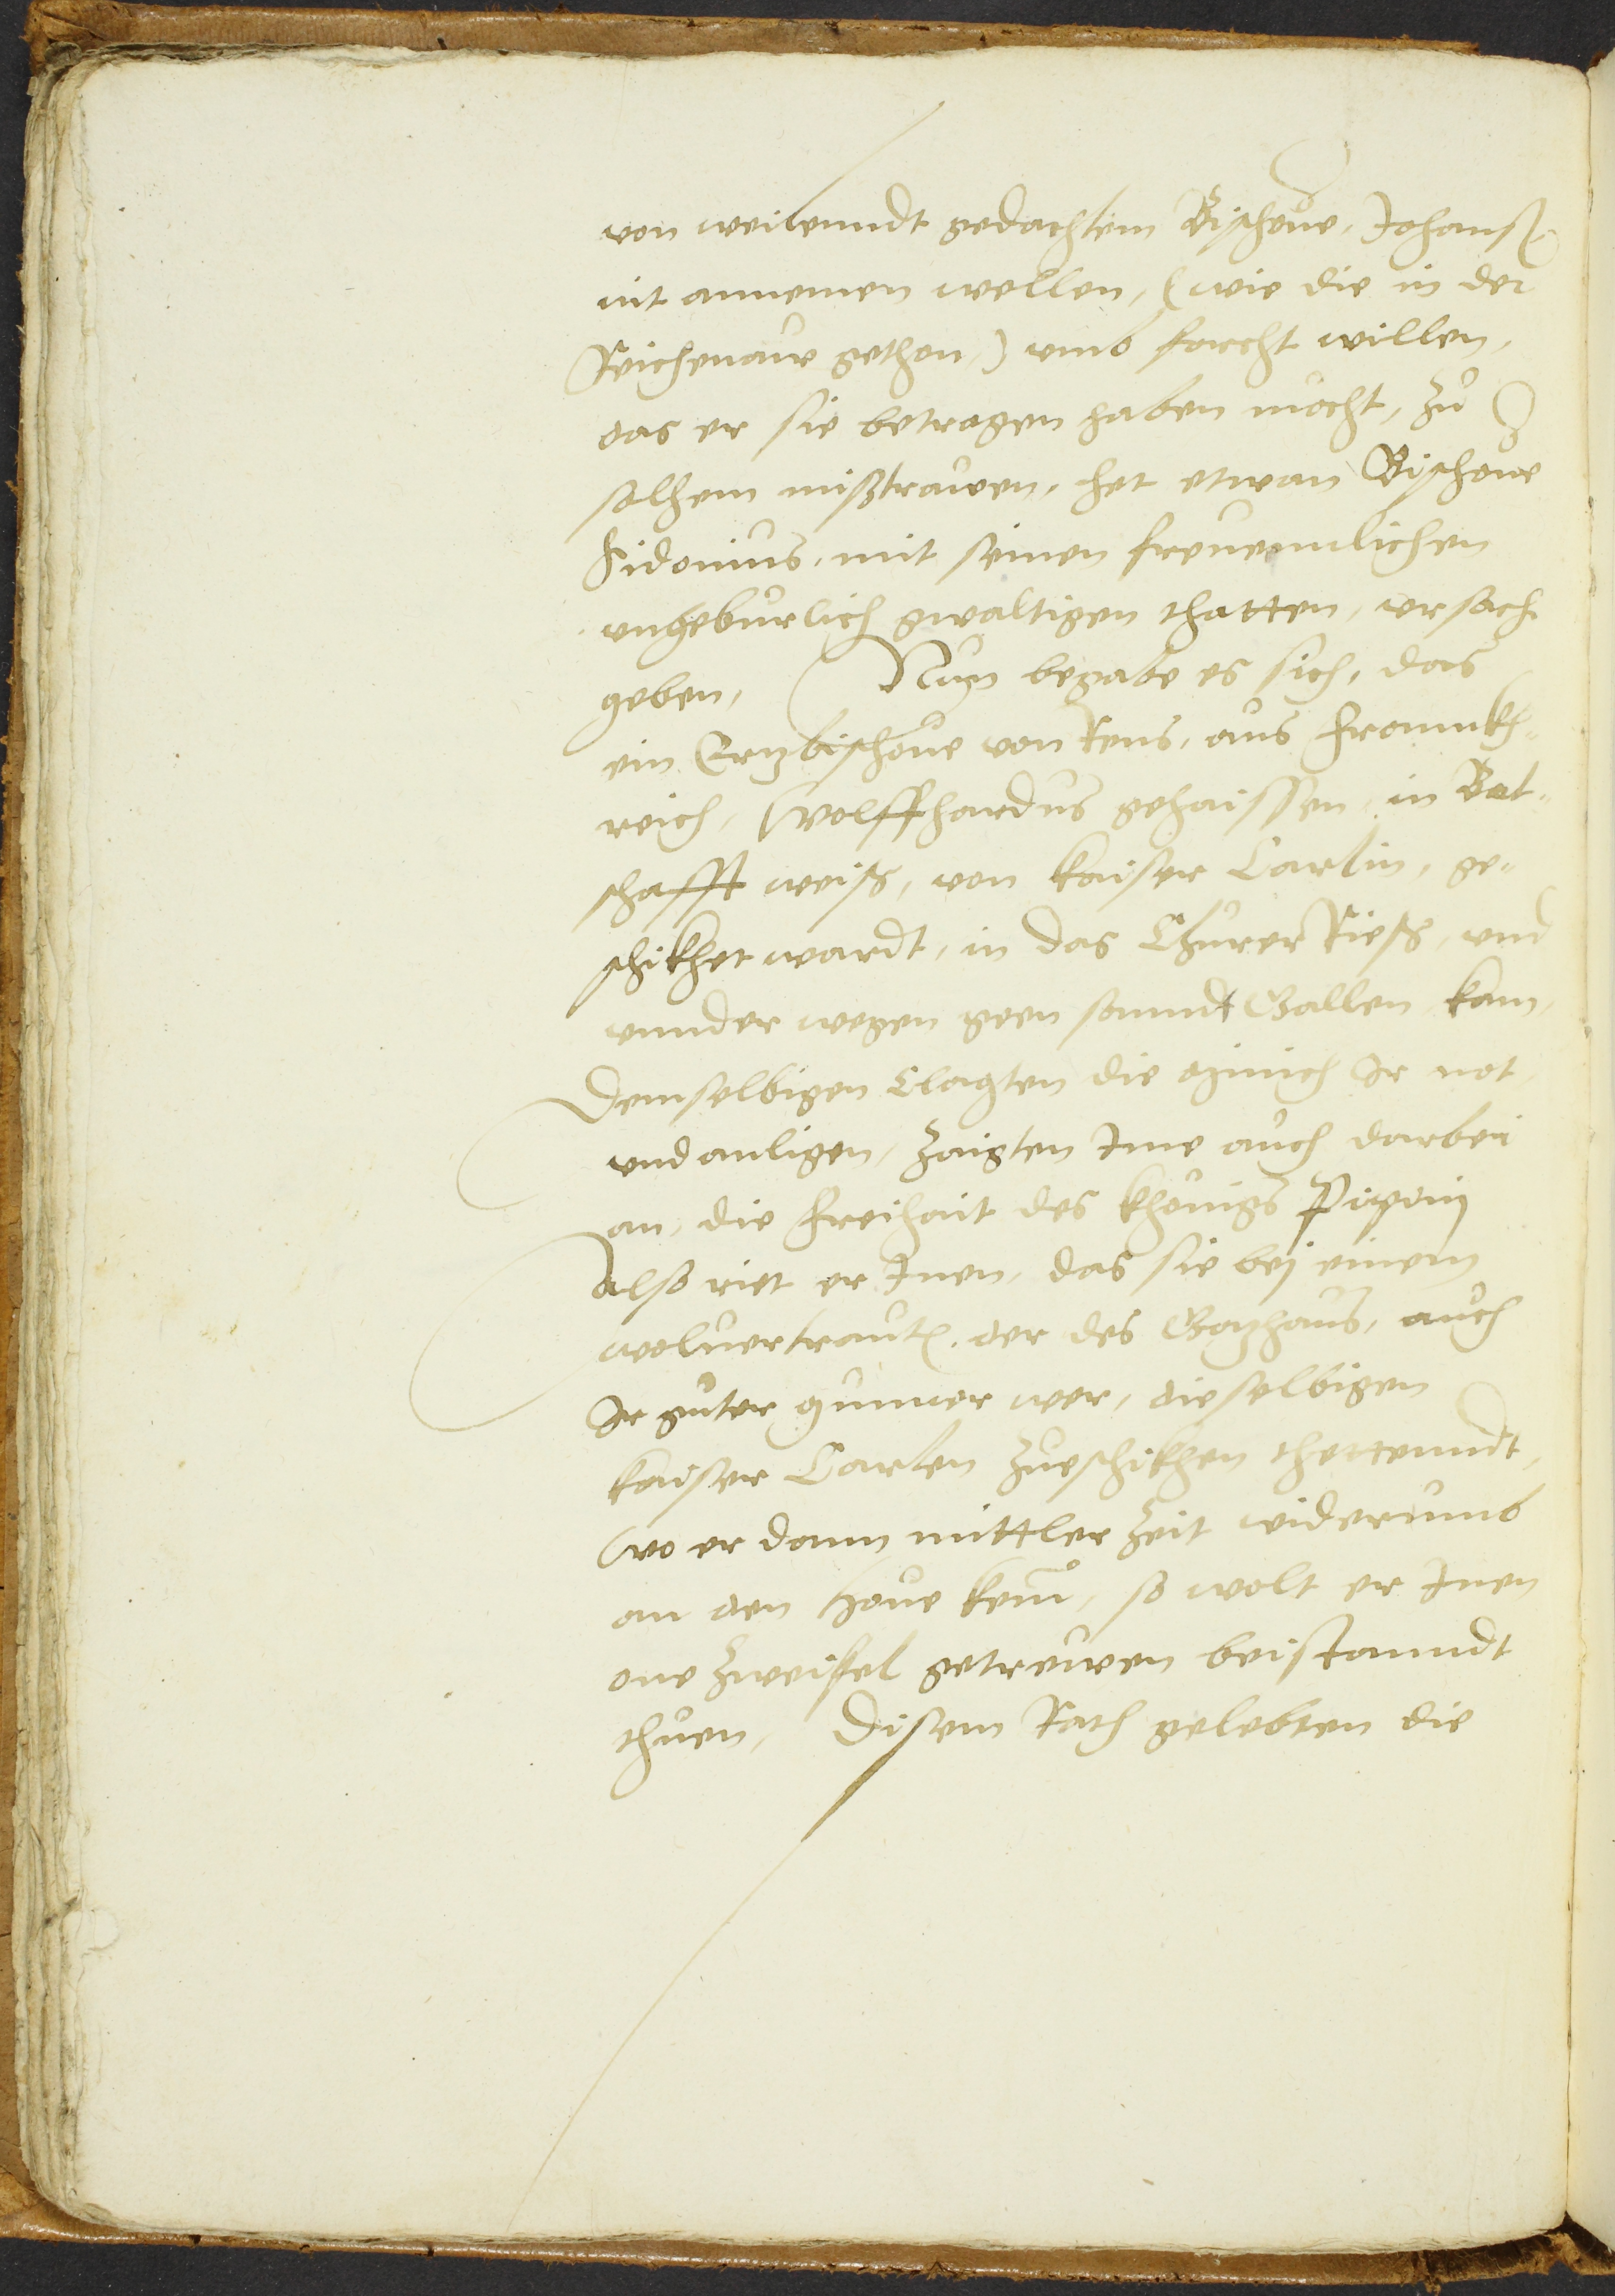 von weilenndt gedachtem Bischove, Johanß
nit annemen wellen, (wie die in der
Reichenaue gethon,) umb forcht willen,
das er sie betrogen haben mocht, zů
solhem mißtrauen, het etwan Bischove
Sidonius, mit seinen frevenlichen
ungeburlich gwaltigen thatten, ursach
geben, Nun begabe es sich, das
ein Ertzbischove von Rens, aus Frannckh-
reich, Wolffhardus gehaissen, in Bot-
schafft weiß, von kaiser Carlin, ge-
schikhet wardt, in das Churer Rieß, und
unnder wegen geen sannt Gallen kam,
Demselbigen Clagten die münich Ir not,
und anligen, zaigten Ime auch darbei
an, die Freihait des khönigs Pipinj
Also riet er Inen, das sie bej einem
wolvertrauten, der des Gotzhaus, auch
Ir guter gunner wer, dieselbigen
kaiser Carlen zueschikhen thettenndt,
Wo er dann mittler zeit widerumb
an den Hove kem, so wolt er Inen
one zweiffel getreuen beistanndt
thuen, Disem Rath gelebten die